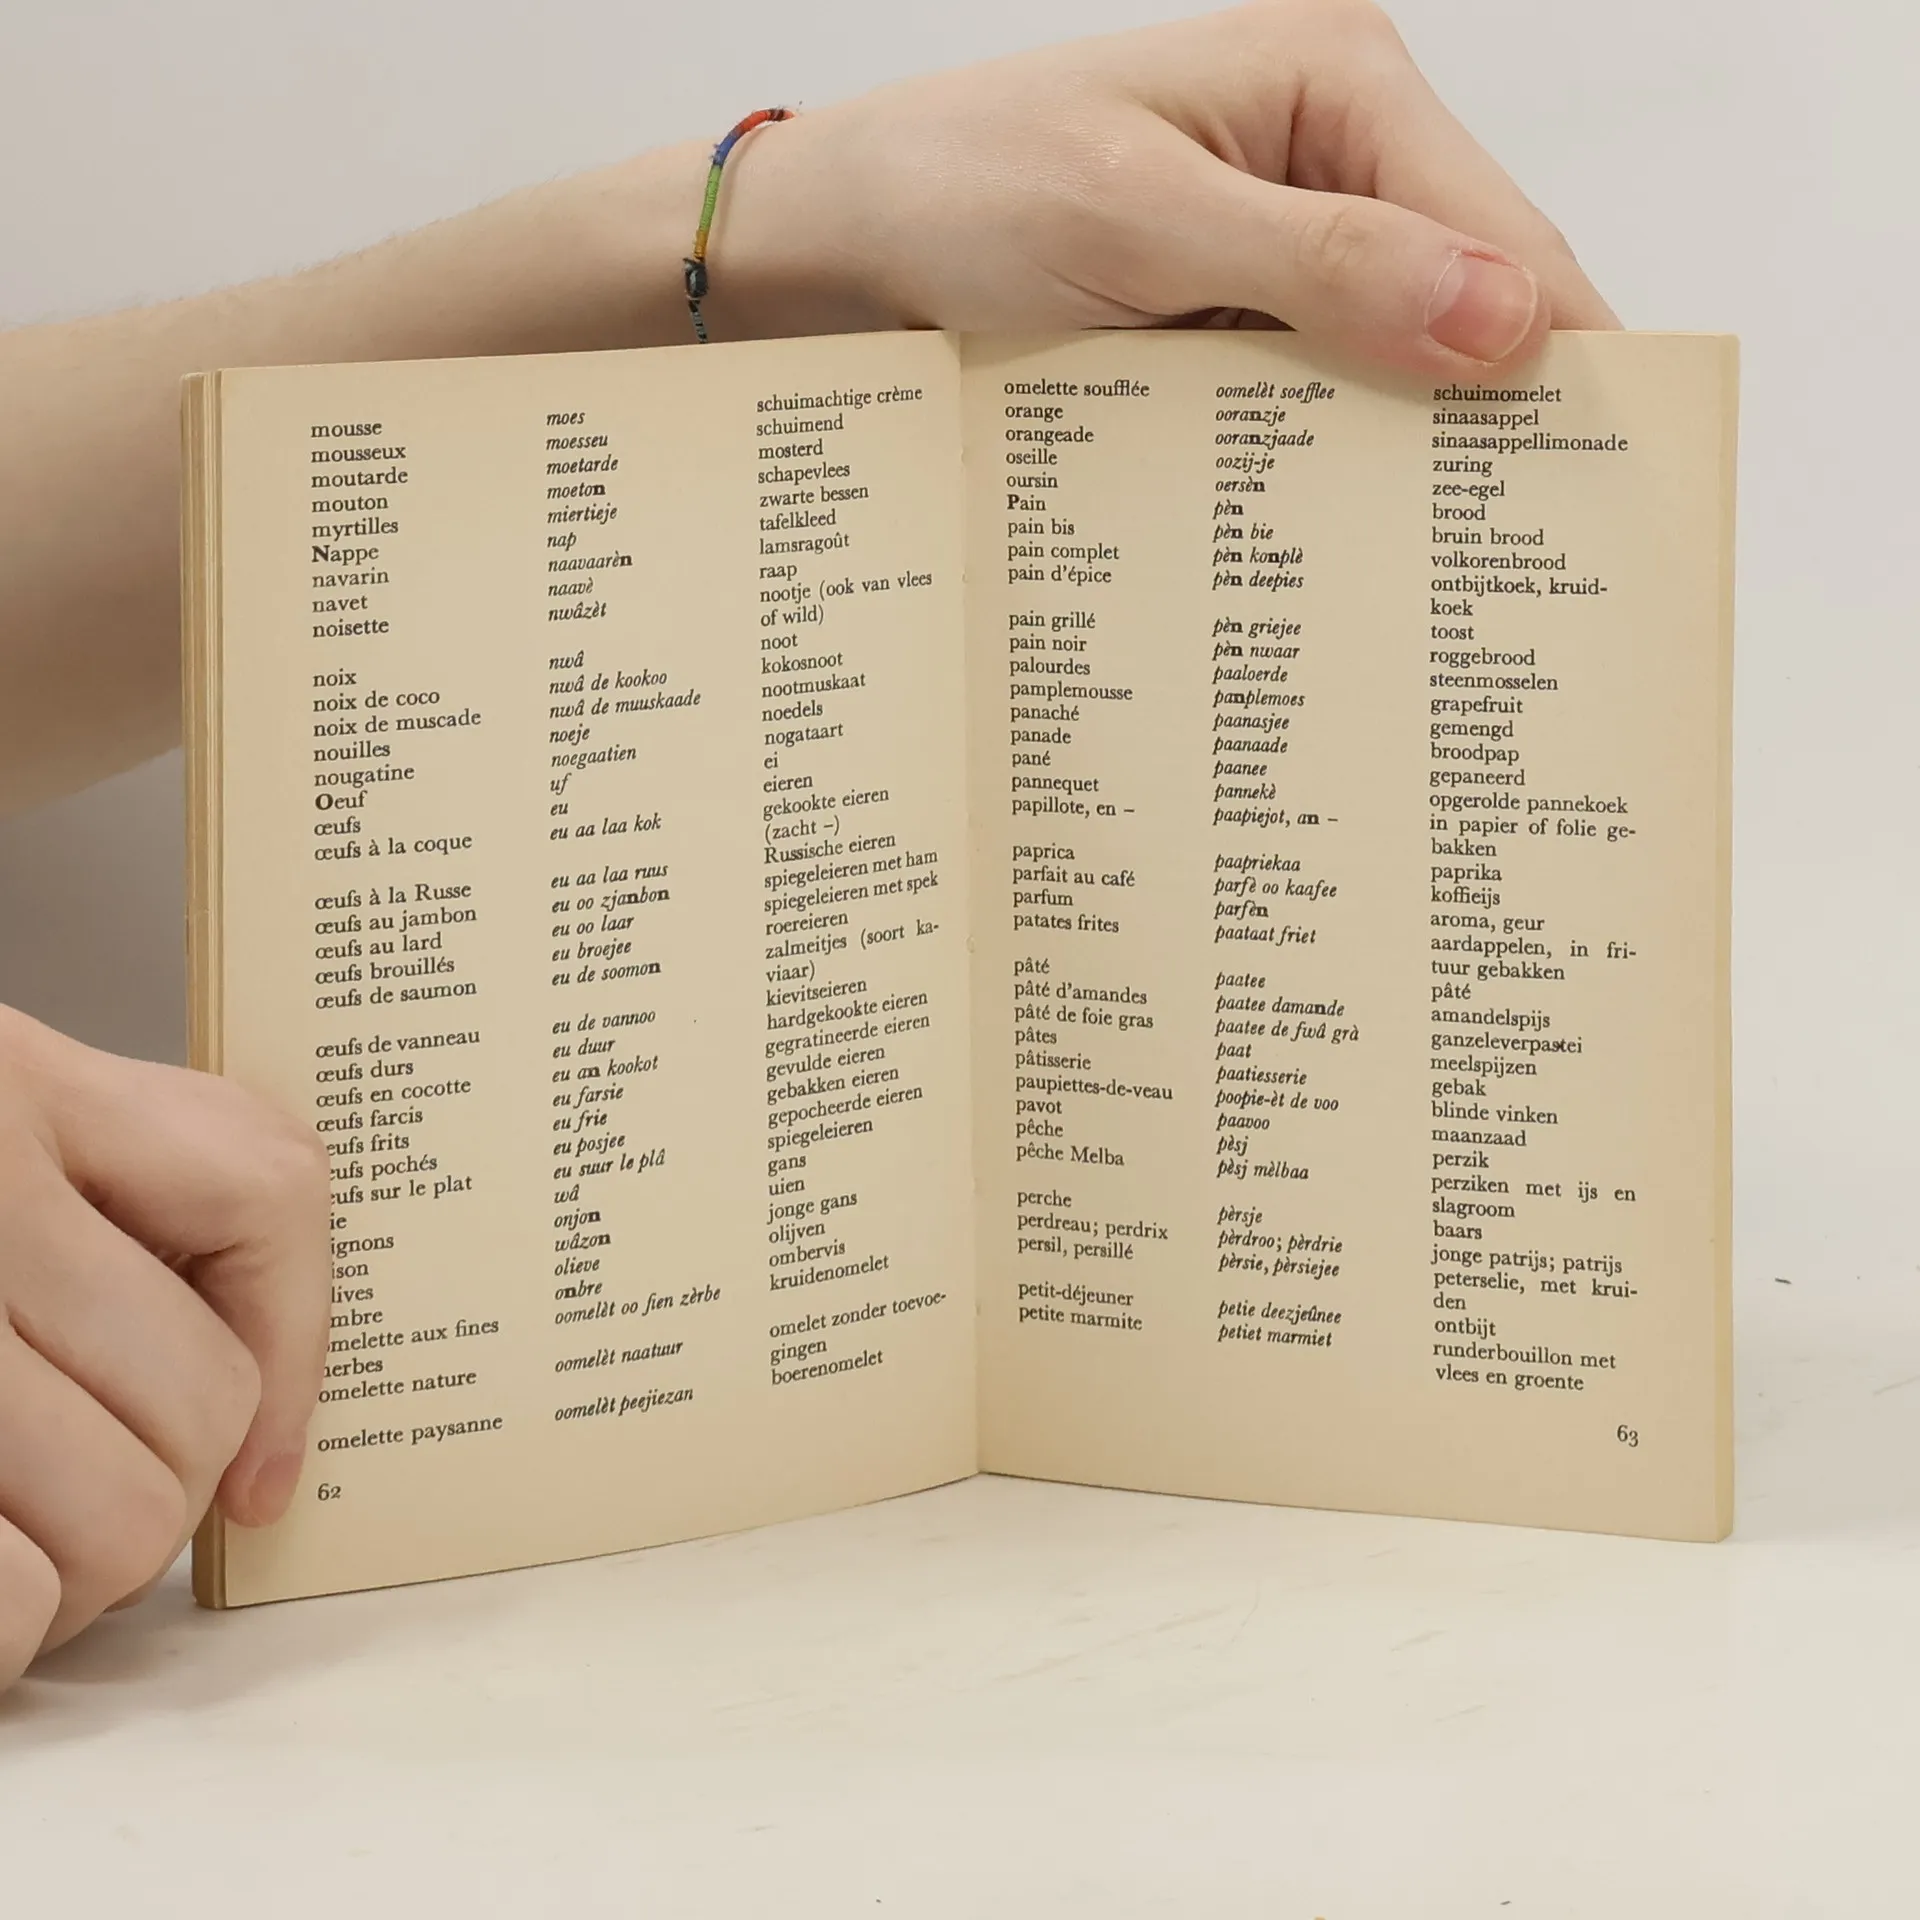 mousse moes schuimachtige crème
mousseux moesseu schuimend
moutarde moetarde mosterd
mouton moeton schapevlees
myrtilles miertieje zwarte bessen
Nappe nap tafelkleed
navarin naavaarèn lamsragoût
navet naavè raap
noisette nwâzèt nootje (ook van vlees
of wild)
noix nwâ noot
noix de coco nwâ de kookoo kokosnoot
noix de muscade nwâ de muuskaade nootmuskaat
nouilles noeje noedels
nougatine noegaatien nogataart
Oeuf uf ei
œufs eu eieren
œufs à la coque eu aa laa kok gekookte eieren
(zacht –)
œufs à la Russe eu aa laa ruus Russische eieren
œufs au jambon eu oo zjanbon spiegeleieren met ham
œufs au lard eu oo laar spiegeleieren met spek
œufs brouillés eu broejee roereieren
œufs de saumon eu de soomon zalmeitjes (soort ka-
viaar)
œufs de vanneau eu de vannoo kievitseieren
œufs durs eu duur hardgekookte eieren
œufs en cocotte eu an kookot gegratineerde eieren
œufs farcis eu farsie gevulde eieren
eufs frits eu frie gebakken eieren
eufs pochés eu posjee gepocheerde eieren
eufs sur le plat eu suur le plâ spiegeleieren
ie wâ gans
ignons onjon uien
ison wâzon jonge gans
lives olieve olijven
mbre onbre ombervis
melette aux fines oomelèt oo fien zèrbe kruidenomelet
herbes
omelette nature oomelèt naatuur omelet zonder toevoe-
gingen
omelette paysanne oomelèt peejiezan boerenomelet
62
omelette soufflée oomelèt soefflee schuimomelet
orange ooranzje sinaasappel
orangeade ooranzjaade sinaasappellimonade
oseille oozij-je zuring
oursin oersèn zee-egel
Pain pèn brood
pain bis pèn bie bruin brood
pain complet pèn konplè volkorenbrood
pain d'épice pèn deepies ontbijtkoek, kruid-
koek
pain grillé pèn griejee toost
pain noir pèn nwaar roggebrood
palourdes paaloerde steenmosselen
pamplemousse panplemoes grapefruit
panaché paanasjee gemengd
panade paanaade broodpap
pané paanee gepaneerd
pannequet pannekè opgerolde pannekoek
papillote, en – paapiejot, an – in papier of folie ge-
bakken
paprica paapriekaa paprika
parfait au café parfè oo kaafee koffieijs
parfum parfèn aroma, geur
patates frites paataat friet aardappelen, in fri-
tuur gebakken
pâté paatee pâté
pâté d'amandes paatee damande amandelspijs
pâté de foie gras paatee de fwâ grà ganzeleverpastei
pâtes paat meelspijzen
pâtisserie paatiesserie gebak
paupiettes-de-veau poopie-èt de voo blinde vinken
pavot paavoo maanzaad
pêche pèsj perzik
pêche Melba pèsj mèlbaa perziken met ijs en
slagroom
perche pèrsje baars
perdreau; perdrix pèrdroo; pèrdrie jonge patrijs; patrijs
persil, persillé pèrsie, pèrsiejee peterselie, met krui-
den
petit-déjeuner petie deezjeûnee ontbijt
petite marmite petiet marmiet runderbouillon met
vlees en groente
63